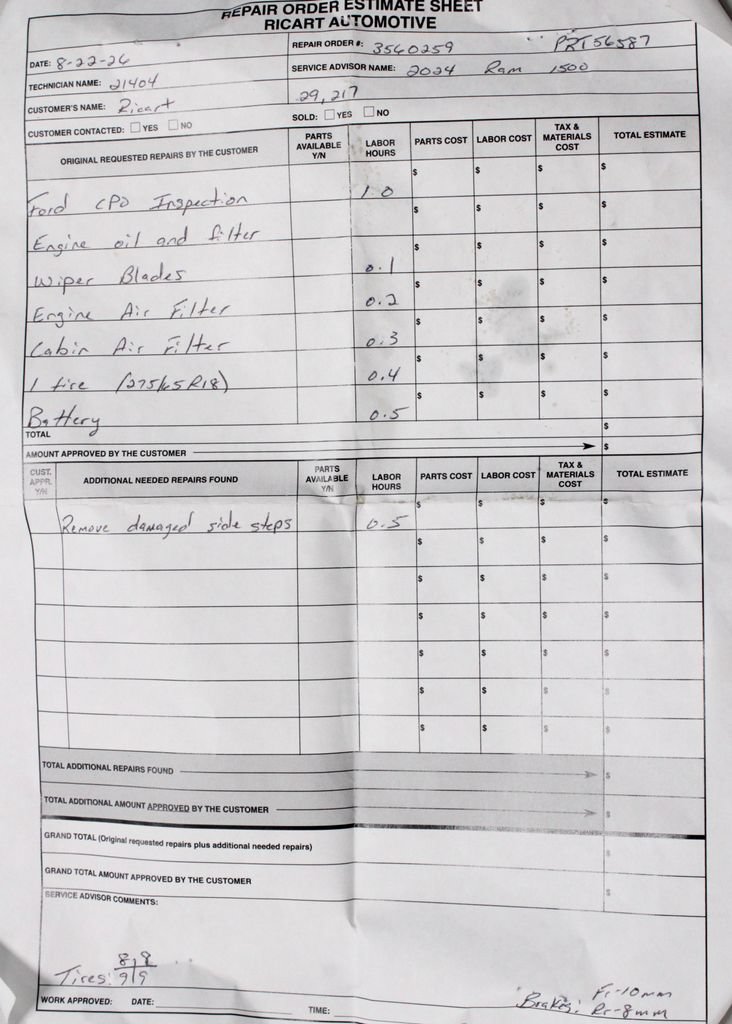 REPAIR ORDER ESTIMATE SHEET
RICART AUTOMOTIVE
DATE: 8-22-26
REPAIR ORDER #: 3560259 PRT56587
TECHNICIAN NAME: 21404
SERVICE ADVISOR NAME: 2024 Ram 1500
CUSTOMER'S NAME: Ricart
29,217
CUSTOMER CONTACTED: YES NO
SOLD: YES NO
ORIGINAL REQUESTED REPAIRS BY THE CUSTOMER PARTS AVAILABLE Y/N LABOR HOURS PARTS COST LABOR COST TAX & MATERIALS COST TOTAL ESTIMATE
Ford CPO Inspection 1.0 $ $ $ $
Engine oil and filter $ $ $ $
Wiper Blades 0.1 $ $ $ $
Engine Air Filter 0.2 $ $ $ $
Cabin Air Filter 0.3 $ $ $ $
1 tire (275/65R18) 0.4 $ $ $ $
Battery 0.5 $ $ $ $
TOTAL $
AMOUNT APPROVED BY THE CUSTOMER $
CUST. APPR. Y/N ADDITIONAL NEEDED REPAIRS FOUND PARTS AVAILABLE Y/N LABOR HOURS PARTS COST LABOR COST TAX & MATERIALS COST TOTAL ESTIMATE
Remove damaged side steps 0.5 $ $ $ $
$ $ $ $
$ $ $ $
$ $ $ $
$ $ $ $
$ $ $ $
$ $ $ $
TOTAL ADDITIONAL REPAIRS FOUND $
TOTAL ADDITIONAL AMOUNT APPROVED BY THE CUSTOMER $
GRAND TOTAL (Original requested repairs plus additional needed repairs) $
GRAND TOTAL AMOUNT APPROVED BY THE CUSTOMER $
SERVICE ADVISOR COMMENTS:
8 8
Tires: 9 9
Fr-10mm
Brakes: Rr-8mm
WORK APPROVED: DATE: TIME: